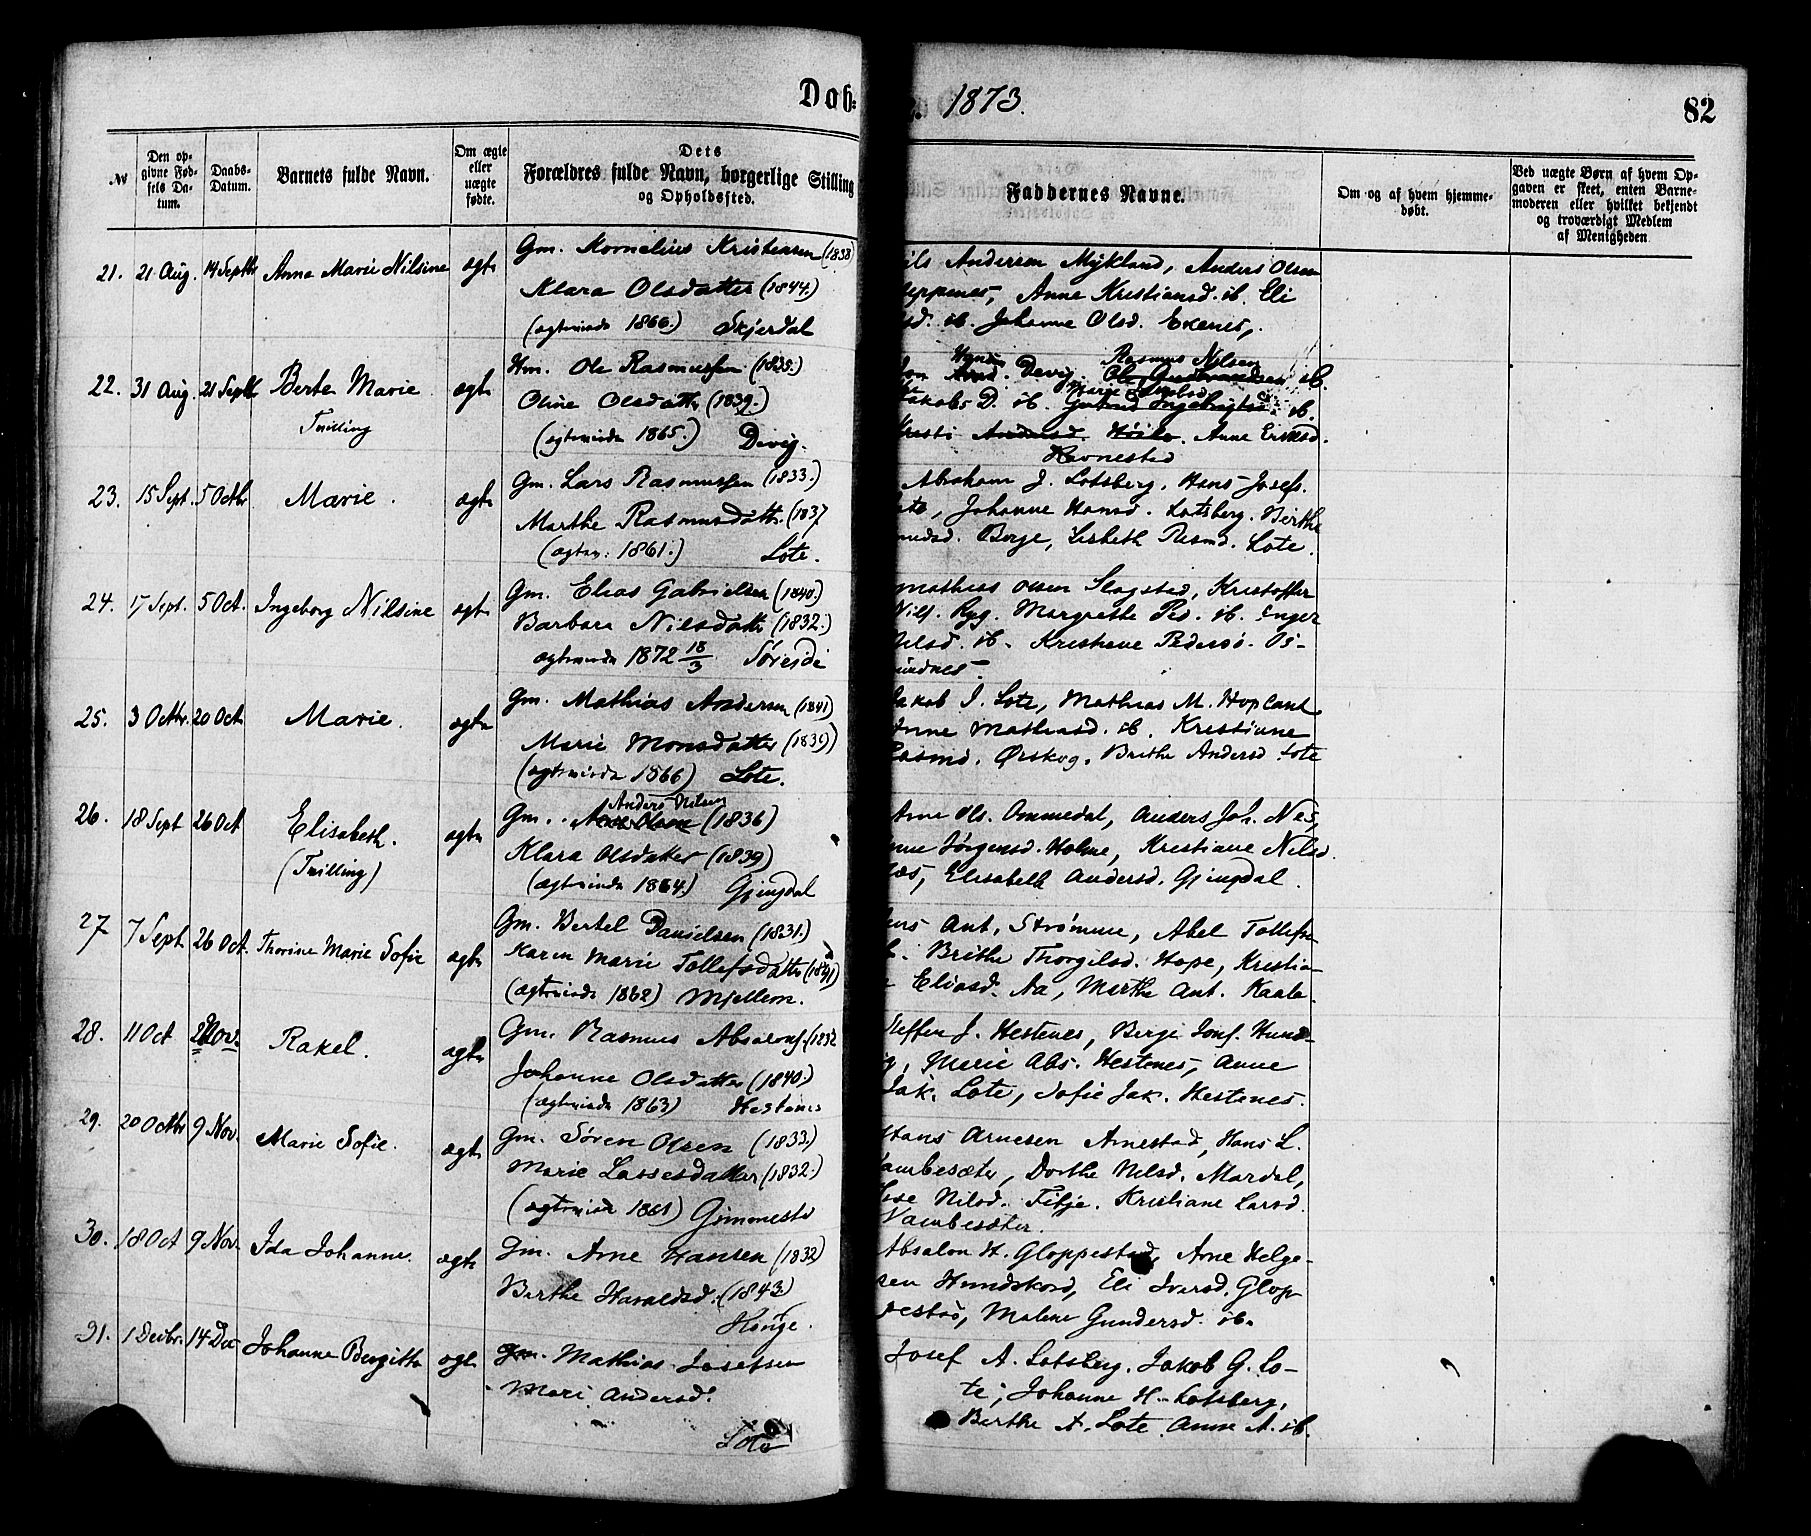 Dob: 1873. 82
№
Den opgivne Fødsels Datum.
Daabs-Datum.
Barnets fulde Navn.
Om ægte eller uægte fødte.
Dets Forældres fulde Navn, borgerlige Stilling og Opholdssted.
Faddernes Navne.
Om og af hvem hjemmedøbt.
Ved uægte Børn af hvem Opgaven er skeet, enten Barnemoderen eller hvilket bekjendt og troværdigt Medlem af Menigheden
21. 21 Aug. 14 Septbr Anna Marie Nilsine ægte Gm. Kornelius Kristensen (1838)
Klara Olsdatter (1844.)
(ægteviede 1866.) Skjerdal
ils Andersen Mykland, Anders Olsen
eppenes, Anne Kristiansd. ib. Eli
sd. ib. Johanne Olsd. Exenes,
22. 31 Aug. 21 Septb Berte Marie ægte Hm. Ole Rasmussen (1835.)
Tvilling
Oline Olsdatter (1839.)
(ægteviede 1865.) Devig.
Devig. Rasmus Nilsen ib.
Jakobs D. ib. ib.
Kristi Andersd. Anne Eriksd.
Havnestad
23. 15 Sept. 5 Octbr Marie. ægte Gm. Lars Rasmussen (1833.)
Marthe Rasmusdattr. (1837
(ægtev: 1861.) Lote.
Abraham J. Lotsberg. Hans Josefs.
ote, Johanne Hansd. Lotsberg. Birthe
medsd. Berge, Lisbeth Rasmd. Lote.
24. 17 Sept. 5 Oct. Ingeborg Nilsine ægte Gm. Elias Gabrielsen (1840.)
Barbara Nilsdattr (1832.)
ægteviede 1872 18/3 Søreide
mathias Olsen Slagstad, Kristoffer
Nils. Ryg. Margrethe Ped. ib. Inger
Nilsd. ib. Kristiane Pedersd. Os-
mundnes.
25. 3 Octbr. 20 Oct Marie. ægte Gm. Mathias Andersen (1841)
Marie Monsdatter (1839)
(ægteviede 1866) Lote.
Jakob I. Lote, Mathias M. Hopland
Anne Mathiasd. ib. Kristiane
Rasmd. Ørskog. Brithe Andersd Lote
26. 18 Sept 26 Oct Elisabeth. ægte Gm. Anders Nilsen Arne Olsen (1836)
(Tvilling)
Klara Olsdatter (1839)
(ægteviede 1864.) Gjengdal
Arne Ols. Ommedal, Anders Joh. Nes,
nne Jørgensd. Holme, Kristiane Nilsd.
Næs, Elisabeth Andersd. Gjengdal.
27 7 Sept 26 Oct. Thorine Marie Sofie ægte Gm. Bertel Danielsen (1831.)
Karen Marie Tollefsdattr (1841)
(ægteviede 1862) Mjellem.
ens Ant. Strømme, Abel Tollefs-
Brithe Thorgilsd. Hope, Kristia-
Eliasd. Aa, Marthe Ant. Kaala-
28. 11 Oct 2 Nov. Rakel. ægte Gm. Rasmus Absalons. (1832
Johanne Olsdatter (1840.)
(ægteviede 1863) Hestenes
Steffen J. Hestenes, Berge Jons. Hund-
Marie Abs. Hestenes, Anne
Jak. Lote, Sofie Jak. Hestenes.
29. 20 Octbr 9 Nov. Marie Sofie. ægte Gm. Søren Olsen (1833.)
Marie Lassesdatter (1832.)
(ægteviede 1861) Gimmestd
Hans Arnesen Arnestad, Hans L.
Vambesæter, Dorthe Nilsd. Mardal,
Lise Nilsd. Fitje. Kristiane Larsd.
Vambesæter.
30. 18 Oct 9 Nov. Ida Johanne. ægte Gm. Arne Hansen (1832)
Berthe Haraldsd. (1843.)
Hauge.
Absalon H. Gloppestad, Arne Helge-
sen Hundskord, Eli Iversd. Glop-
pestad, Malene Gundersd. ib.
31. 1 Decbr. 14 Dec Johanne Bergitte ægte Gm. Mathias Josefsen
Mari Andersd.
Lote
Josef A. Lotsberg. Jakob G. Lo-
te, Johanne H. Lotsberg,
Berthe A. Lote. Anne A. ib.